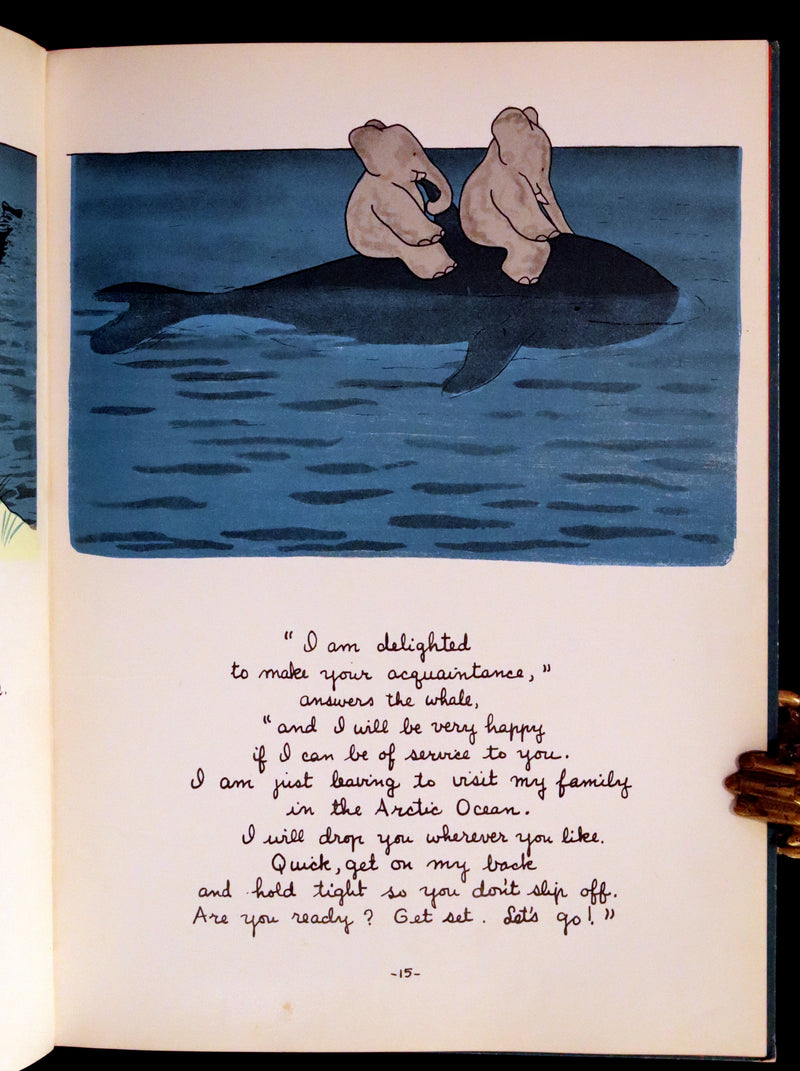 "I am delighted
to make your acquaintance,"
answers the whale,
"and I will be very happy
if I can be of service to you.
I am just leaving to visit my family
in the Arctic Ocean.
I will drop you wherever you like.
Quick, get on my back
and hold tight so you don't slip off.
Are you ready? Get set. Let's go!"
-15-